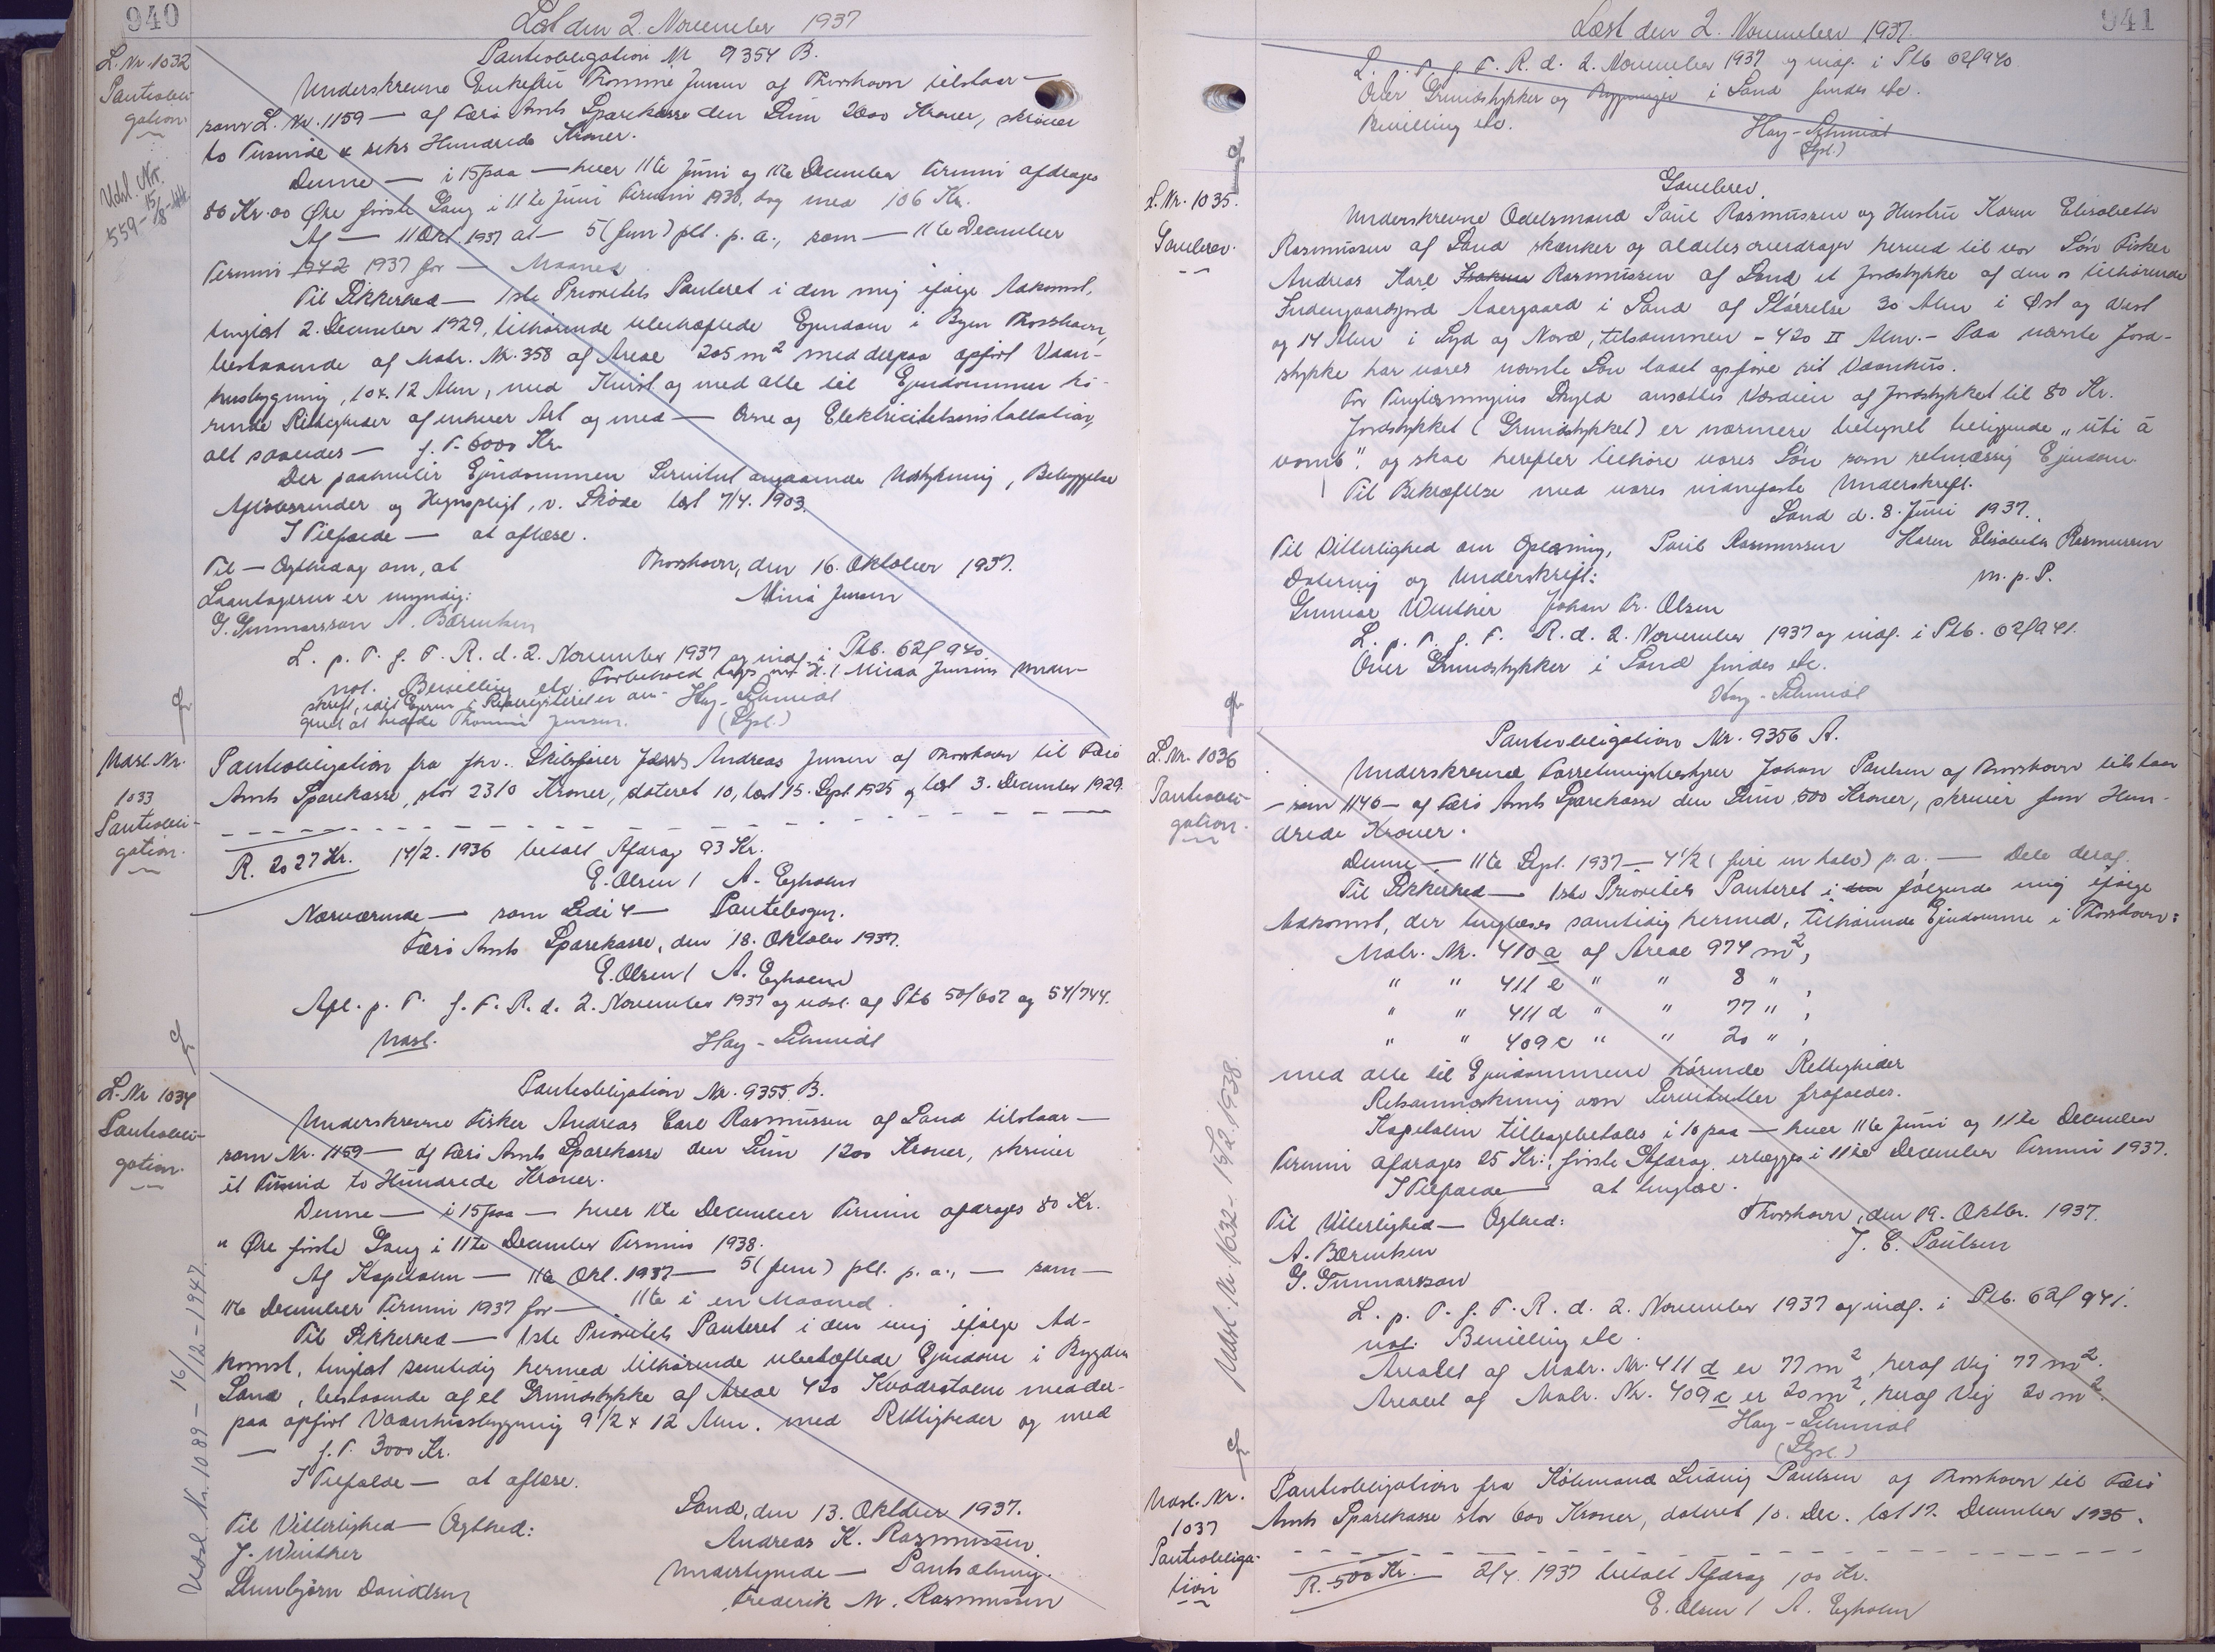 940
Læst den 2. November 1937
L. Nr. 1032
Pantobli-
gation
Udsl. Nr.
559 - 15/8 -
Pantobligation Nr 9354 B.
Underskrevne Enkefru Jensen af Thorshavn tilstaar —
som L. Nr. 1159 — af Færø Amts Sparekasse den Sum 2600 Kroner, skriver
to Tusinde & seks Hundrede Kroner.
Denne — i 15 paa — hver 11te Juni og 11te December Termin afdrages
80 Kr. 00 Øre første Gang i 11te Juni Termin 1938, dog med 106 Kr.
Af — 11 Okt. 1937 at — 5 (fem) pCt. p. a., som — 11te December
Termin 1942 1937 for — Maaned
Til Sikkerhed — 1ste Prioritets Panteret i den mig ifølge Adkomst,
tinglæst 2. December 1929, tilhørende ubehæftede Ejendom i Byen Thorshavn,
bestaaende af Matr. Nr. 358 af Areal 205 m² med derpaa opført Vaan-
husbygning, 10 x 12 Alen, med Kvist og med alle til Ejendommen hø-
rende Rettigheder af enhver Art og med — Ovne og Elektricitetsinstallation,
alt saaledes — f. T. 6000 Kr.
Der paahviler Ejendommen Servitut angaaende Udstykning, Bebyggelse
Afløbsrender og Hegnspligt, v. Skøde læst 7/4. 1903.
I Tilfælde — at aflæse.
Til — Ægthed og om, at
Thorshavn, den 16. Oktober 1937.
Laantageren er myndig:
Mina Jensen
G. Gunnarsson A. Bærentsen
L. p. T. f. F. R. d. 2. November 1937 og indf. i Ptb. 62/940
not. Bevilling etc. Forbehold tages m. H. t. Minas Jensens Under-
skrift, idet Ejeren i Realregisteret er an- Hay-Schmidt
givet at hedde Thomine Jensen. (Gpl.)
Udsl. Nr.
1033
Pantobli-
gation.
Pantobligation fra fhv. Skibsfører Andreas Jensen af Thorshavn til Færø
Amts Sparekasse, stor 2310 Kroner, dateret 10, læst 15. Sept. 1925 og læst 3. December 1929.
R. 2027 Kr. 14/2. 1936 betalt Afdrag 93 Kr.
E. Olsen / A. Egholm
Nærværende — som — Pantebogen.
Færø Amts Sparekasse, den 18. Oktober 1937.
E. Olsen / A. Egholm
Afl. p. T. f. F. R. d. 2. November 1937 og udsl. af Ptb 50/602 og 54/744.
Udsl.
Hay-Schmidt
L. Nr 1034
Pantobli-
gation.
Udsl. Nr. 1089 - 16/12 - 1947.
Pantobligation Nr. 9355 B.
Underskrevne Fisker Andreas Carl Rasmussen af Sand tilstaar —
som Nr. 1159 — af Færø Amts Sparekasse den Sum 1200 Kroner, skriver
et Tusind to Hundrede Kroner.
Denne — i 15 paa — hver 11te December Termin afdrages 80 Kr.
" Øre første Gang i 11te December Termin 1938.
Af Kapitalen — 11te Okt. 1937 — 5 (fem) pCt. p. a., — som —
11te December Termin 1937 for — 11te i en Maaned.
Til Sikkerhed — 1ste Prioritets Panteret i den mig ifølge Ad-
komst, tinglæst samtidig hermed tilhørende ubehæftede Ejendom i Bygden
Sand, bestaaende af et Grundstykke af Areal 420 Kvadratalen med der-
paa opført Vaanhusbygning 9½ x 12 Alen, med Rettigheder og med
— f. T. 3000 Kr.
I Tilfælde — at aflæse.
Til Vitterlighed — Ægthed:
Sand, den 13. Oktober 1937.
J. Winther
Andreas K. Rasmussen.
Steinbjørn Davidsen
Undertegnede — Pantsætning.
Frederik M. Rasmussen
941
Læst den 2. November 1937.
L. p. T. f. F. R. d. 2. November 1937 og indf. i Ptb 62/940
Over Grundstykker og Bygninger i Sand findes etc.
Bevilling etc.
Hay-Schmidt
(Gpl.)
L. Nr. 1035.
Gavebrev.
Gavebrev
Underskrevne Odelsmand Poul Rasmussen og Hustru Karen Elisabeth
Rasmussen af Sand skænker og aldeles overdrager herved til vor Søn Fisker
Andreas Karl Rasmussen af Sand et Jordstykke af den os tilhørende
Aaregaard i Sand af Størrelse 30 Alen i Øst og Vest
og 14 Alen i Syd og Nord, tilsammen - 420 □ Alen. - Paa nævnte Jord-
stykke har vores nævnte Søn ladet opføre sit Vaanhus.
For Tinglæsningens Skyld ansættes Værdien af Jordstykket til 80 Kr.
Jordstykket (Grundstykket) er nærmere betegnet beliggende „úti á
vomb“. og skal herefter tilhøre vores Søn som retmæssig Ejendom.
Til Bekræftelse med vores vidnefaste Underskrift.
Sand d. 8. Juni 1937.
Til Vitterlighed om Oplæsning, Poul Rasmussen Karen Elisabeth Rasmussen
Datering og Underskrift:
m. p. P.
Gunnar Winther Johan Fr. Olsen
L. p. T. f. F. R. d. 2. November 1937 og indf. i Ptb. 62/941.
Over Grundstykker i Sand findes etc.
Hay-Schmidt
L. Nr. 1036
Pantobli-
gation.
Udsl. Nr. 1632 - 15/12. 1938.
Pantobligation Nr. 9356 A.
Underskrevne Forretningsbestyrer Johan Paulsen af Thorshavn tilstaar
- som 1146 - af Færø Amts Sparekasse den Sum 500 Kroner, skriver fem Hun-
drede Kroner.
Denne — 11te Sept. 1937 — 4½ (fire en halv) p. a. — Dele deraf.
Til Sikkerhed — 1ste Prioritets Panteret i den følgende mig ifølge
Adkomst, der tinglæses samtidig hermed, tilhørende Ejendomme i Thorshavn:
Matr. Nr. 410 a af Areal 974 m²,
" " 411 e " " 8 " ,
" " 411 d " " 77 " ,
" " 409 c " " 20 " ,
med alle til Ejendommene hørende Rettigheder
Retsanmærkning om Servitutter frafaldes.
Kapitalen tilbagebetales i 10 paa — hver 11te Juni og 11te December
Termin afdrages 25 Kr., første Afdrag erlægges i 11te December Termin 1937.
I Tilfælde — at tinglæse.
Til Vitterlighed — Ægthed:
Thorshavn, den 19. Oktbr. 1937.
A. Bærentsen
J. C. Paulsen
G. Gunnarsson
L. p. T. f. F. R. d. 2. November 1937 og indf. i Ptb. 62/941.
not. Bevilling etc.
Arealet af Matr. Nr. 411 d er 77 m², heraf Vej 77 m².
Arealet af Matr. Nr. 409 c er 20 m², heraf Vej 20 m².
Hay-Schmidt
(Gpl.)
Udsl. Nr.
1037
Pantobliga-
tion
Pantobligation fra Købmand Ludvig Paulsen af Thorshavn til Færø
Amts Sparekasse stor 600 Kroner, dateret 10. Dec. læst 17. December 1935.
R. 500 Kr. 2/4. 1937 betalt Afdrag 100 Kr.
E. Olsen / A. Egholm